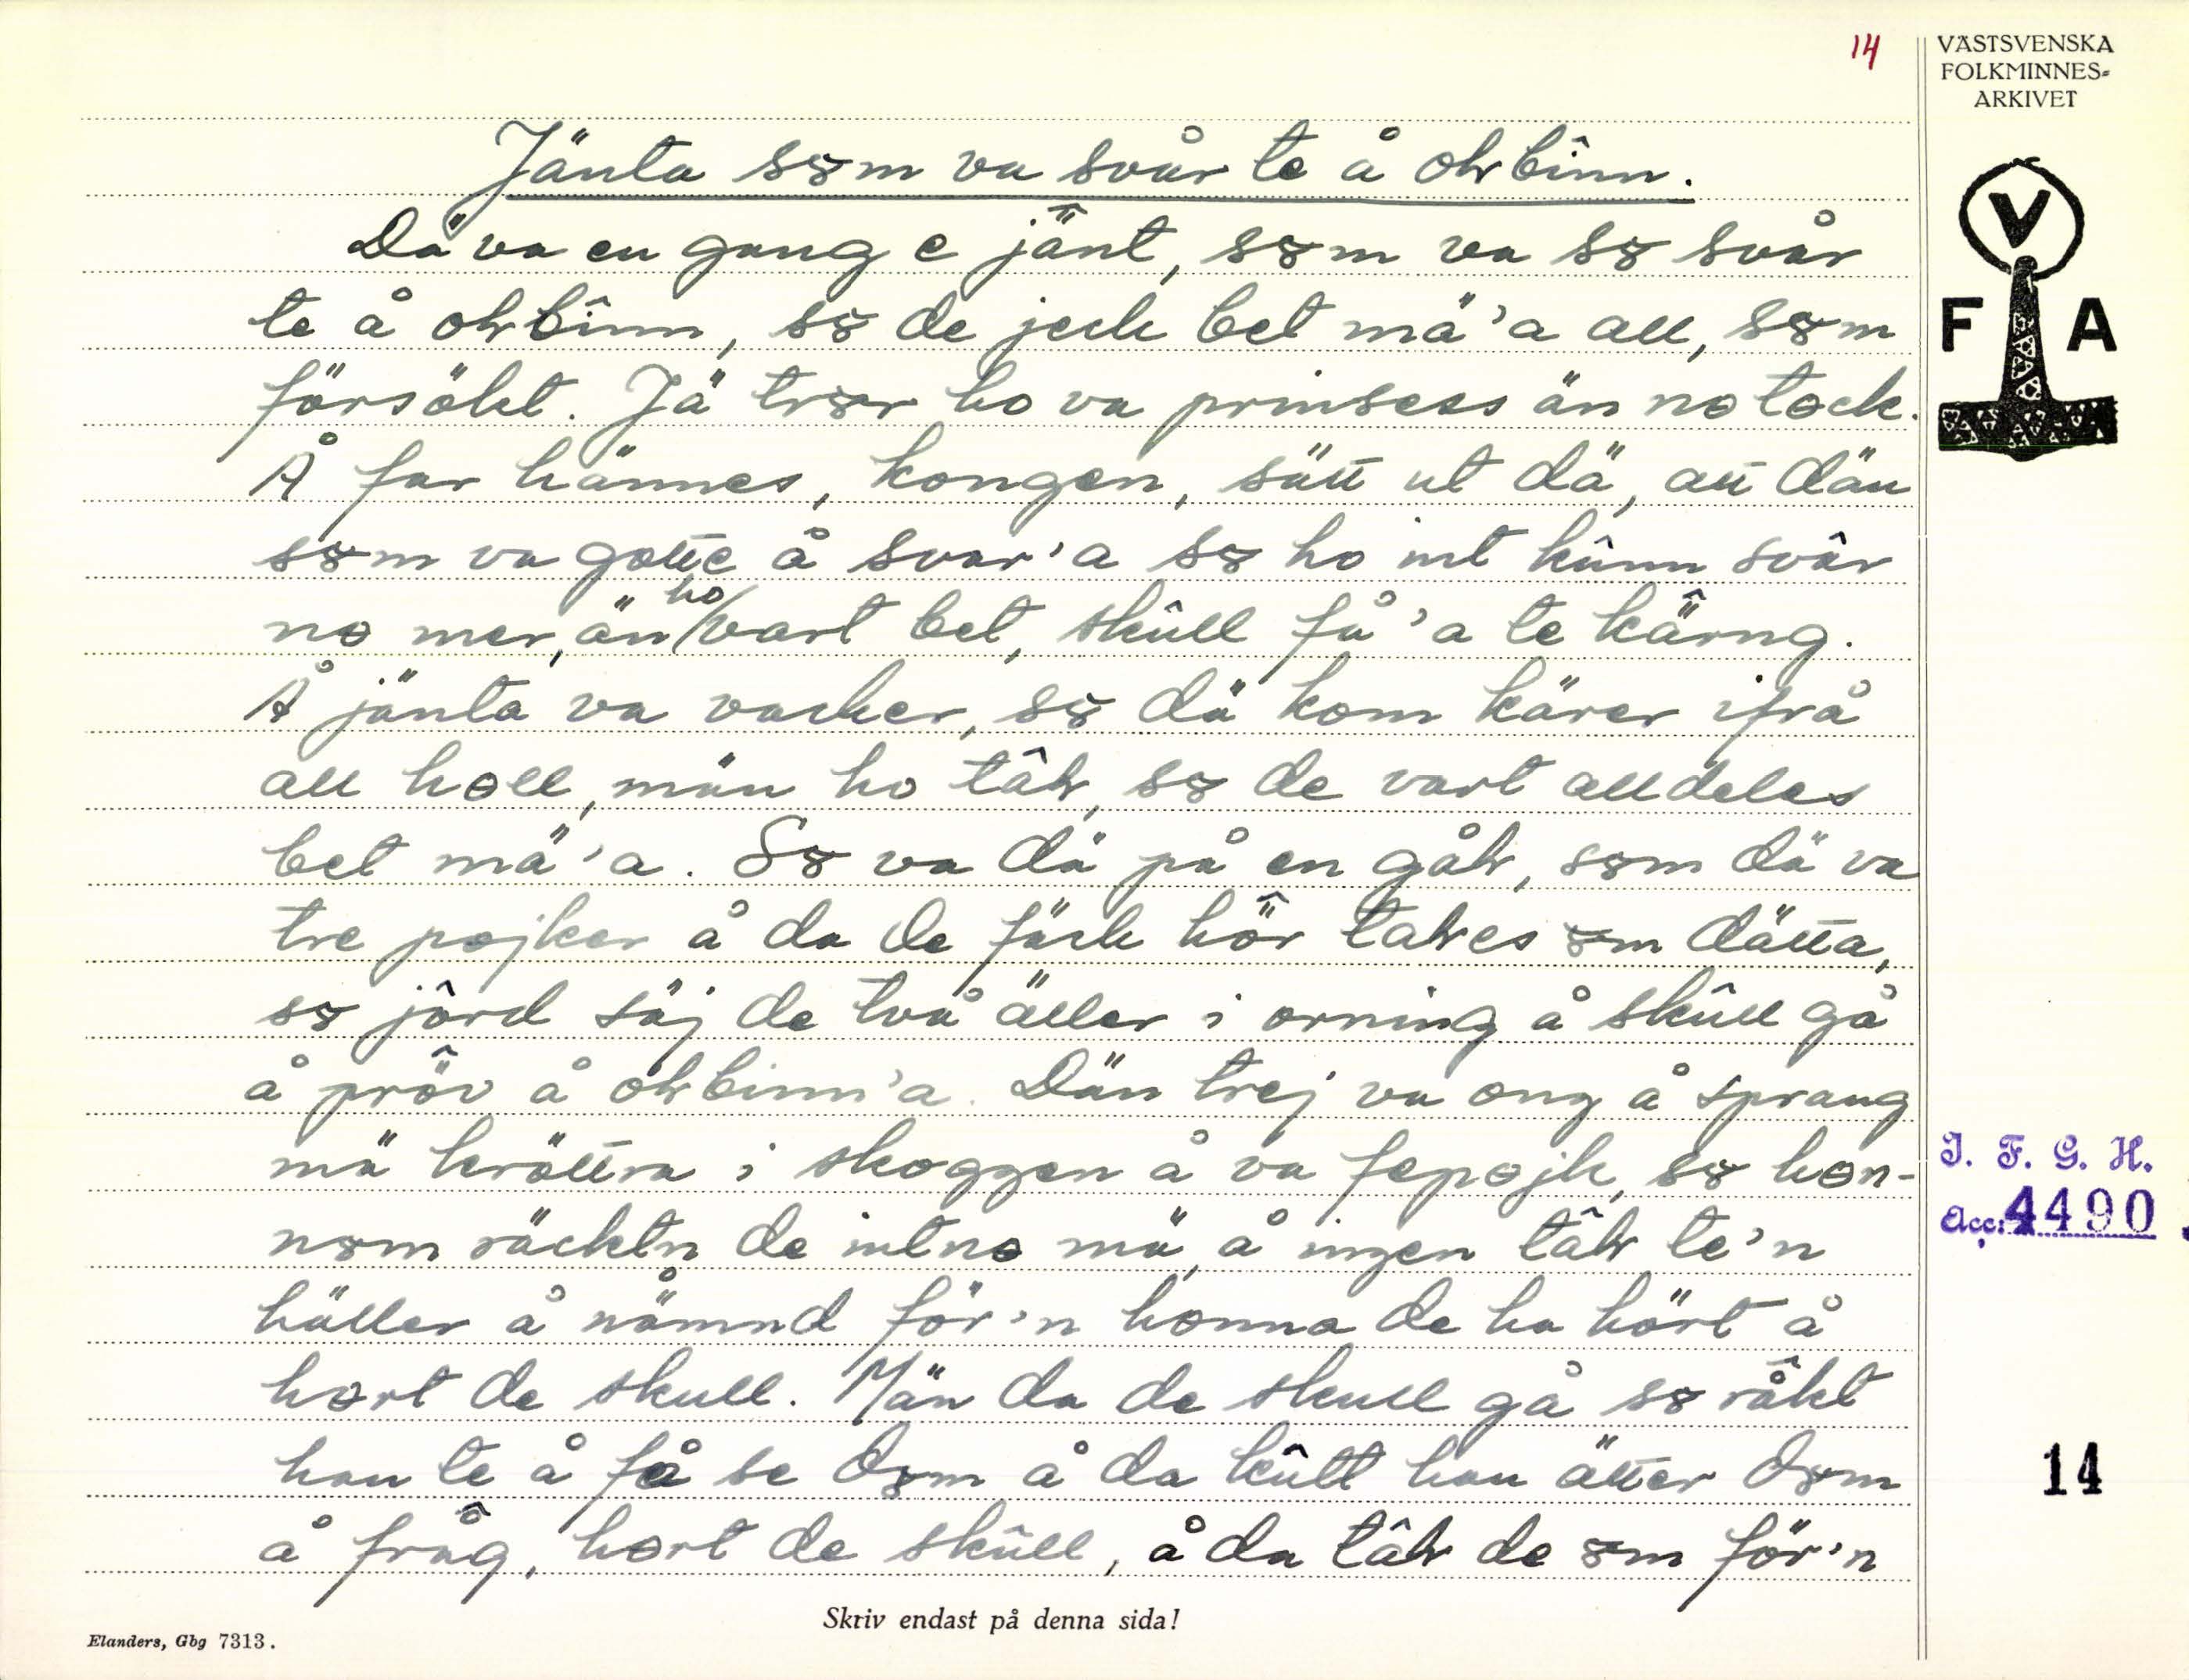 14
VÄSTSVENSKA
FOLKMINNES-
ARKIVET
V
F A
Jänta søm va svår te å oɫbînn.
Dä va en gang e jä̂nt, søm va sø svår
te å oɫbînn, sø de jeck bet mä'a all, søm
försökt. Jä trør ho va prinsess än no tock.
Å far hännes, kongen, sätt ut dä, att dän
søm va gotte å svar'a sø ho int kûnn svâr
no mer, än ho vart bet, skûll få'a te kä̂rng.
Å jänta va vacker, sø dä kom kärer ifrå
all holl, män ho tâɫ, sø de vart alldeles
bet mä'a. Sø va dä på en gåɫ, søm dä va
tre pojker å da de fäck hö̂r taɫes øm dätta,
sø jôrd säj de två äller i orning å skûll gå
å prö̂v å oɫbinn'a. Dän trej va ong å sprang
mä kröttra i skoggen å va fepojk, sø hon-
nøm räcktn de intno mä, å ingen tâɫ te'n
häller å nämnd för'n honna de ha hört å
hort de skull. Män da de skull gå sø råkt
han te å få se døm å da kûtt han ätter døm
å frå̂g, hort de skûll, å da tâɫ de øm för'n
J. F. G. H.
Acc: 4490
14
Skriv endast på denna sida!
Elanders, Gbg 7313.